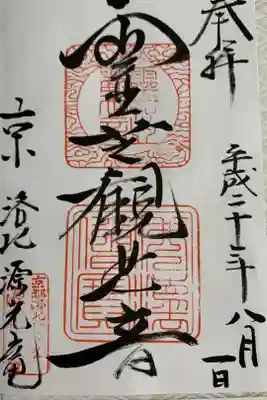 奉拝
平成二十三年八月一日
霊芝觀世音
京 洛北 源光庵